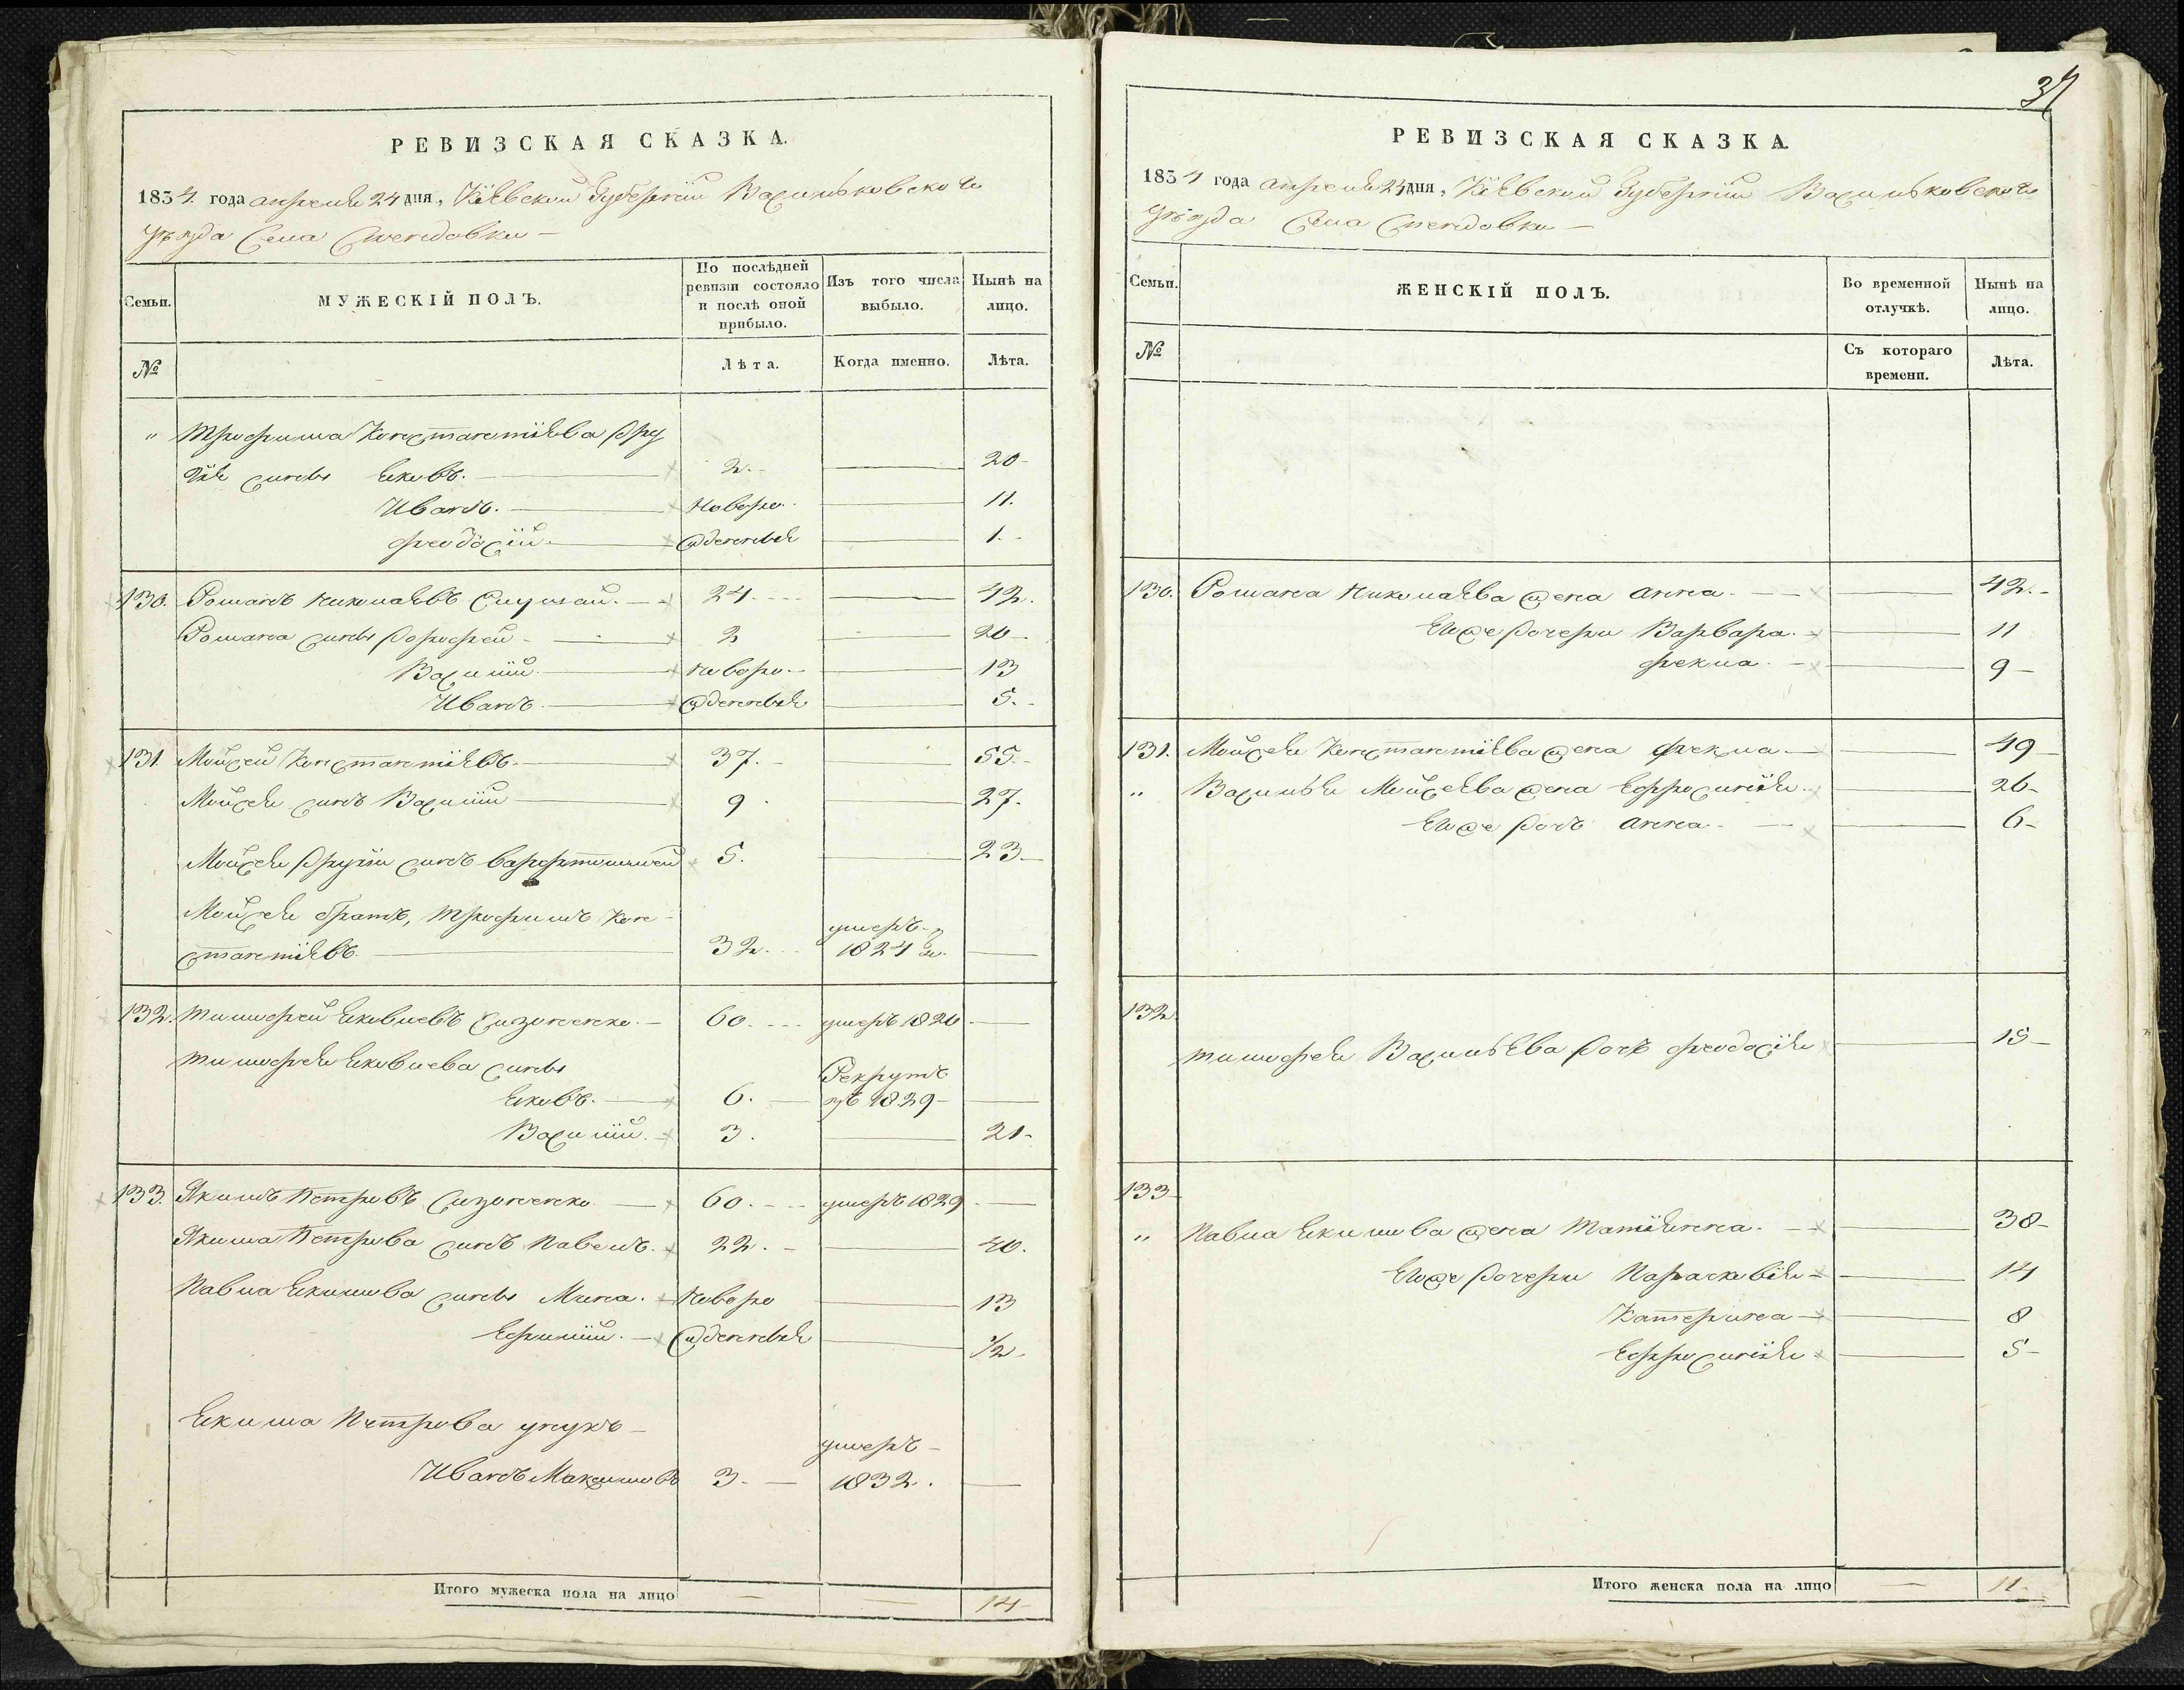 РЕВИЗСКАЯ СКАЗКА.
1834 года апреля 24 дня, Кіевской Губерніи Васильковского
Уѣзда Села
Семьи.
МУЖЕСКІЙ ПОЛЪ.
По послѣдней ревизіи состояло и послѣ оной прибыло.
Изъ того числа выбыло.
Нынѣ на лицо.
№
Лѣта.
Когда именно.
Лѣта.
" Трофима Константіева дру
гія сыны Яковъ. 2. 20
Иванъ. Новоро. 11.
Феодосій. 1.
130. Романъ Николаевъ 24 42.
Романа сыны Дорофей 2 20
Василій Новоро 13
Иванъ. 5.
131. Мойсей Константіевъ. 37. 55.
Мойсея сынъ Василій 9 27.
Мойсея другій сынъ 5. 23
Мойсея братъ, Трофимъ Кон
стантіевъ. 32. умеръ 1824 го.
132. Тимофей Яковлевъ Сизоненко. 60. умеръ 1820
Тимофея Яковлева сыны
Яковъ. 6. Рекрутъ въ 1829
Василій. 3. 21
133. Якимъ Петровъ Сизоненко 60. умеръ 1829
Якима Петрова сынъ Павелъ. 22. 40.
Павла Якимова сыны Мина. Новоро 13
Ефимій. 1/2.
Якима Петрова унукъ
Иванъ Максимовъ 3. умеръ 1832.
Итого мужеска пола на лицо 14
37
РЕВИЗСКАЯ СКАЗКА.
1834 года апреля 24 дня, Кіевской Губерніи Васильковского
Уѣзда Села
Семьи.
ЖЕНСКІЙ ПОЛЪ.
Во временной отлучкѣ.
Нынѣ на лицо.
№
Съ котораго времени.
Лѣта.
130. Романа Николаева жена Анна. 42.
Егоже дочери Варвара. 11
Фекла. 9
131. Мойсея Константіева жена Фекла. 49
" Василья Мойсеева жена Ефросинія. 26
Егоже дочъ Анна. 6
132
Тимофея Васильева дочъ Феодосія 15
133
" Павла Якимова жена Татіянна. 38
Егоже дочери Параскевія 14
Катерина 8
Ефросинія 5
Итого женска пола на лицо 11